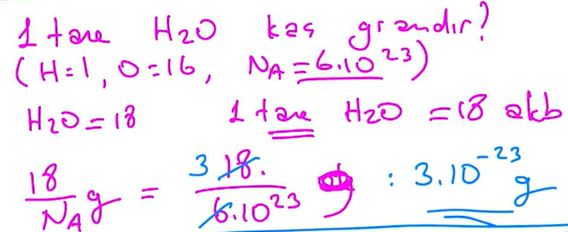 1 tane H₂O kaç gramdır?
(H=1, O=16, NA=6.10²³)
H₂O=18 1 tane H₂O =18 akb
18/NA g = 3 18./6.10²³ g : 3.10⁻²³ g